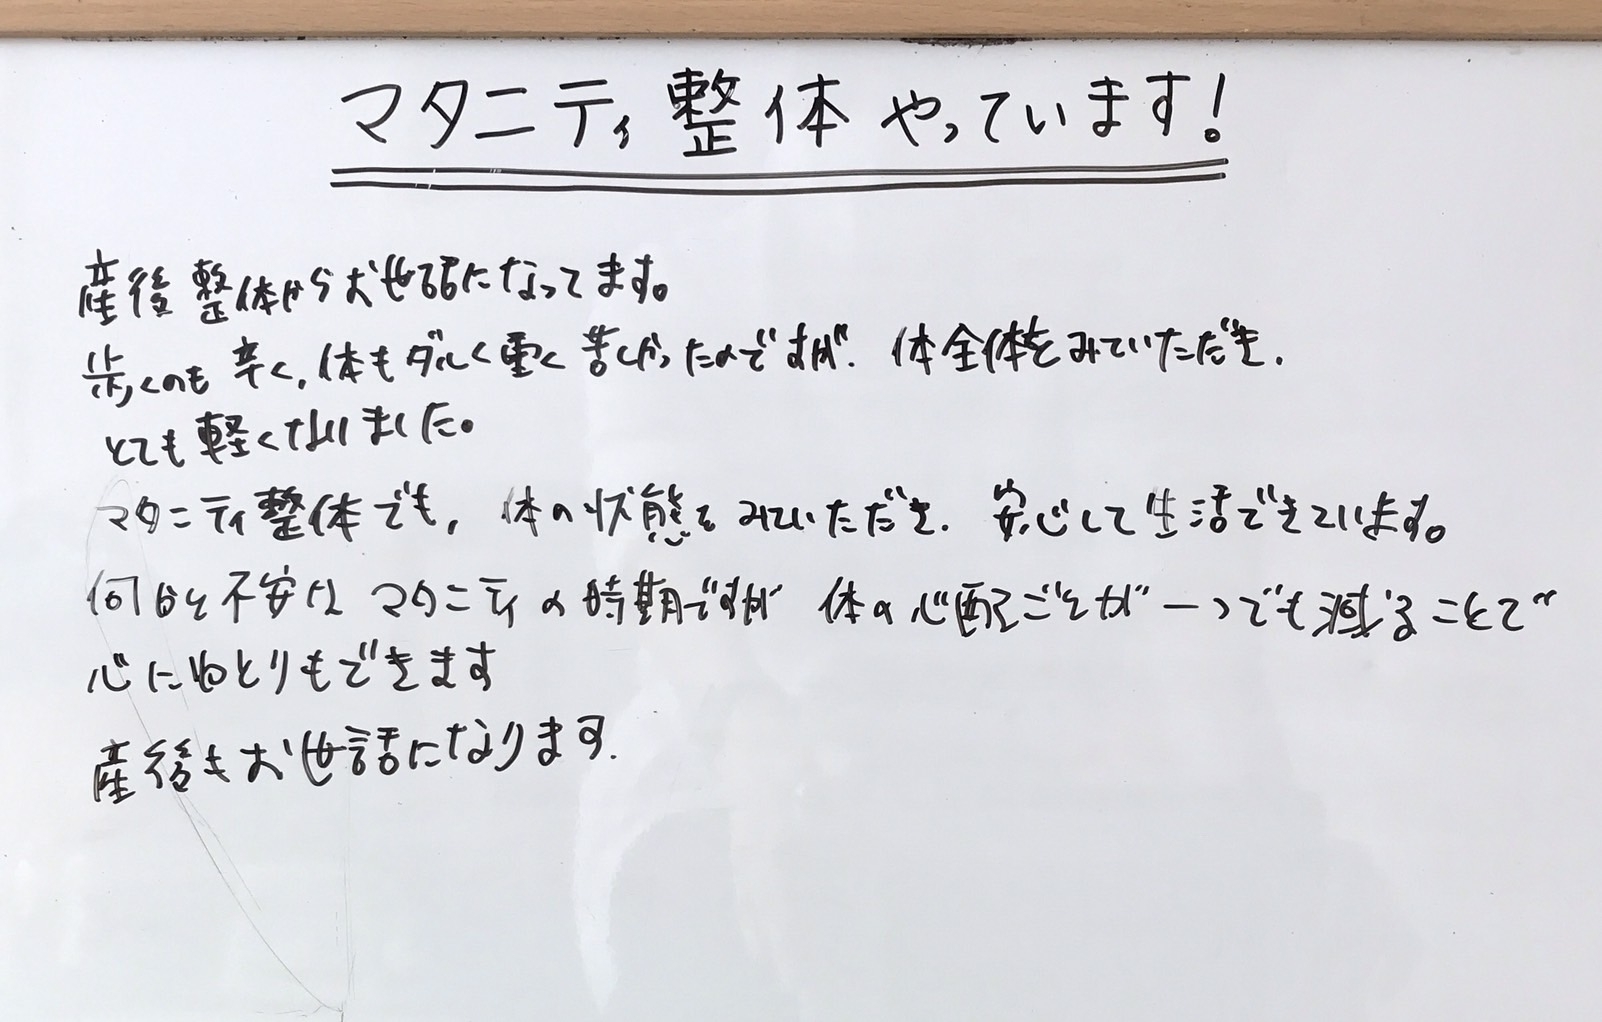 マタニティ整体やっています!
産後整体からお世話になってます。
歩くのも辛く、体もダルく重く苦しかったのですが、体全体をみていただき、
とても軽くなりました。
マタニティ整体でも、体の状態をみていただき、安心して生活できています。
何かと不安なマタニティの時期ですが 体の心配ごとが一つでも減ることで
心にゆとりもできます
産後もお世話になります.